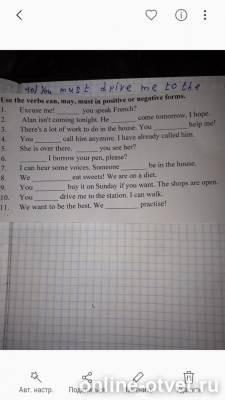 you must drive me to the
Use the verbs can, may, must in positive or negative forms.
1. Excuse me! ______ you speak French?
2. Alan isn't coming tonight. He ______ come tomorrow, I hope.
3. There's a lot of work to do in the house. You ______ help me!
4. You ______ call him anymore. I have already called him.
5. She is over there. ______ you see her?
6. ______ I borrow your pen, please?
7. I can hear some voices. Someone ______ be in the house.
8. We ______ eat sweets! We are on a diet.
9. You ______ buy it on Sunday if you want. The shops are open.
10. You ______ drive me to the station. I can walk.
11. We want to be the best. We ______ practise!
Авт. настр.
Удалить
online-otvet.ru